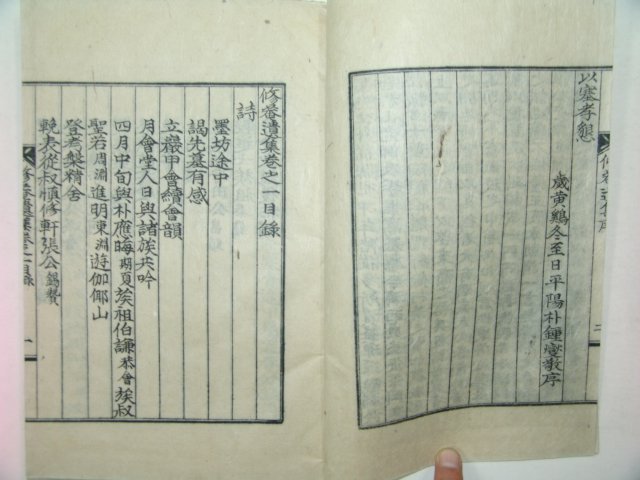 以塞孝懇
歲黃鷄冬至日平陽朴鍾燮敬序
修菴遺集序
二
修菴遺集卷之一目錄
詩
墨坊途中
謁先墓有感
立巖甲會續會韻
月會堂人日與諸族共吟
四月中旬與朴應晦翊夏族祖伯謙恭會族叔
聖若周淵進明東淵遊伽倻山
登考槃精舍
輓表從叔愼修軒張公錫贊
修菴遺集卷之一目錄
一